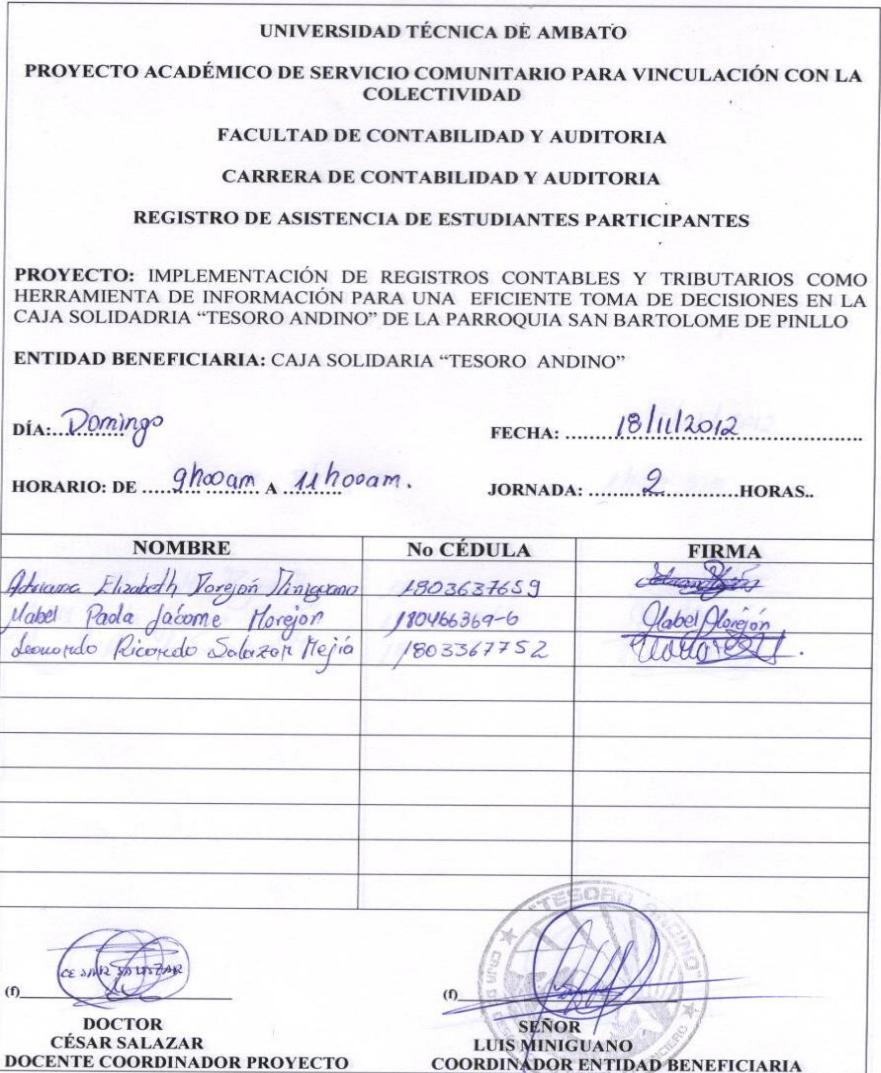 UNIVERSIDAD TÉCNICA DE AMBATO
PROYECTO ACADÉMICO DE SERVICIO COMUNITARIO PARA VINCULACIÓN CON LA
COLECTIVIDAD
FACULTAD DE CONTABILIDAD Y AUDITORIA
CARRERA DE CONTABILIDAD Y AUDITORIA
REGISTRO DE ASISTENCIA DE ESTUDIANTES PARTICIPANTES
PROYECTO: IMPLEMENTACIÓN DE REGISTROS CONTABLES Y TRIBUTARIOS COMO
HERRAMIENTA DE INFORMACIÓN PARA UNA EFICIENTE TOMA DE DECISIONES EN LA
CAJA SOLIDADRIA “TESORO ANDINO” DE LA PARROQUIA SAN BARTOLOME DE PINLLO
ENTIDAD BENEFICIARIA: CAJA SOLIDARIA “TESORO ANDINO”
DÍA: Domingo FECHA: 18/11/2012
HORARIO: DE 9h00am A 11h00am. JORNADA: 2 HORAS..
NOMBRE No CÉDULA FIRMA
Adriana Elizabeth Morejón Miniguano 1803637659
Mabel Paola Jácome Morejón 180466369-6 Mabel Morejón
Leonardo Ricardo Salazar Mejía 1803367752
"TESORO ANDINO"
CESAR SALAZAR
(f) (f)
DOCTOR SEÑOR
CÉSAR SALAZAR LUIS MINIGUANO
DOCENTE COORDINADOR PROYECTO COORDINADOR ENTIDAD BENEFICIARIA